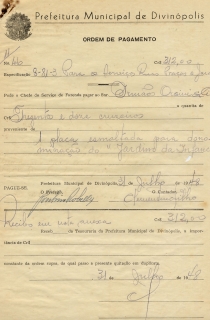 Prefeitura Municipal de Divinópolis
ORDEM DE PAGAMENTO
Cr$ 312,00
Especificação 8-81-3 Para o Serviço Ruas Praças e
Pode o Chefe do Serviço da Fazenda pagar ao Snr.
a quantia de
Cr$ Trezentos e doze cruzeiros
proveniente de
1 placa esmaltada para denominação do "Jardim da Infancia
Prefeitura Municipal de Divinópolis, 31 de Julho de 1948
PAGUE-SE
O Prefeito
O Contador
Recibo em nota anexa
Cr$ 312,00
Recebi da Tesouraria da Prefeitura Municipal de Divinópolis, a importância de Cr$
constante da ordem supra, da qual passo a presente quitação em duplicata.
31 de Julho de 1948